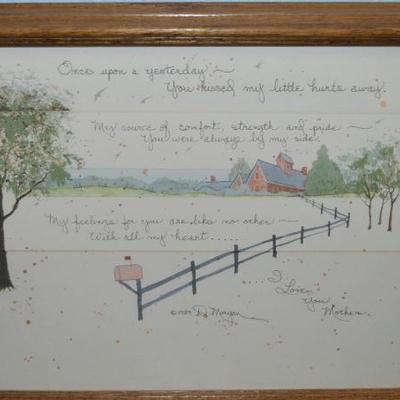 Once upon a yesterday ~
You kissed my little hurts away.
My source of comfort, strength and pride ~
You were always by my side.
My feelings for you are like no other ~
With all my heart.....
....I
Love
You
Mother.
D. Morgan